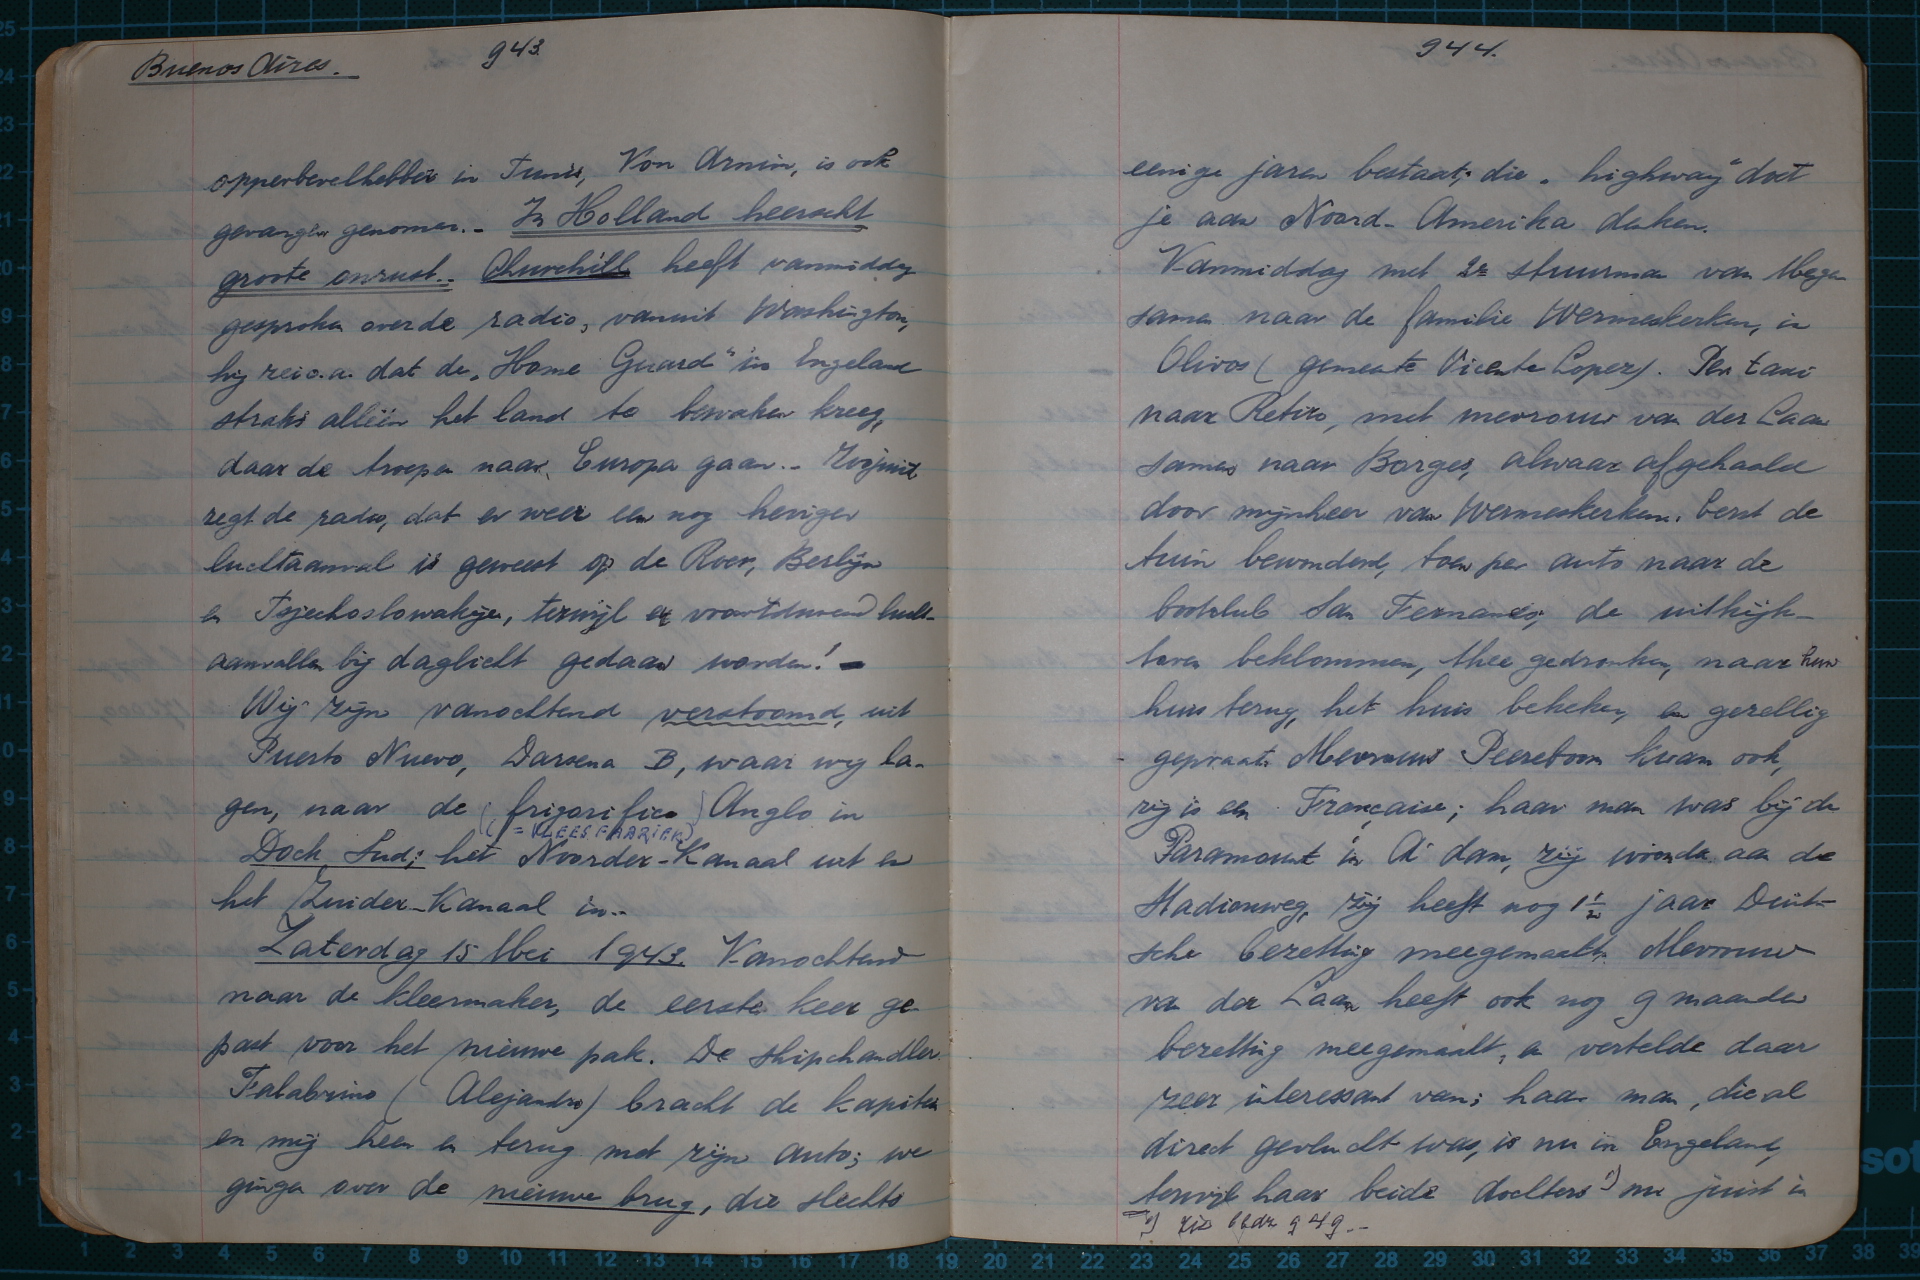 Buenos Aires.
943.
opperbevelhebber in Tunis, Von Arnim, is ook
gevangen genomen.- In Holland heerscht
groote onrust.- Churchill heeft vanmiddag
gesproken over de radio, vanuit Washington,
hij zei o.a. dat de „Home Guard" in Engeland
straks alléén het land te bewaken kreeg,
daar de troepen naar Europa gaan.- Zoojuist
zegt de radio, dat er weer een nog heviger
luchtaanval is geweest op de Roer, Berlijn
en Tsjechoslowakije, terwijl er voortdurend lucht-
aanvallen bij daglicht gedaan worden! -
Wij zijn vanochtend verstoomd, uit
Puerto Nuevo, Darsena B, waar wij la-
gen, naar de (frigorifico) Anglo in
(= VLEESFABRIEK)
Dock Sud; het Noorder-Kanaal uit en
het Zuider-Kanaal in.-
Zaterdag 15 Mei 1943. Vanochtend
naar de kleermaker, de eerste keer ge
past voor het nieuwe pak. De shipchandler
Falabrino (Alejandro) bracht de kapitein
en mij heen en terug met zijn auto; we
gingen over de nieuwe brug, die slechts
944.
eenige jaren bestaat; die „highway" doet
je aan Noord-Amerika denken.
Vanmiddag met 2e stuurman van Megen
samen naar de familie Wermeskerken, in
Olivos (gemeente Vicente Lopez). Per taxi
naar Retiro, met mevrouw van der Laan
samen naar Borges, alwaar afgehaald
door mijnheer van Wermeskerken. Eerst de
tuin bewonderd, toen per auto naar de
bootclub San Fernando; de uitkijk-
toren beklommen, thee gedronken, naar hun
huis terug, het huis bekeken, en gezellig
gepraat. Mevrouw Peereboom kwam ook,
zij is een Française; haar man was bij de
Paramount in A'dam, zij woonde aan de
Stadionweg, zij heeft nog 1½ jaar Duit-
sche bezetting meegemaakt. Mevrouw
van der Laan heeft ook nog 9 maanden
bezetting meegemaakt, en vertelde daar
zeer interessant van; haar man, die al
direct gevlucht was, is nu in Engeland,
terwijl haar beide dochters ¹) nu juist in
¹) zie bldz 949.-